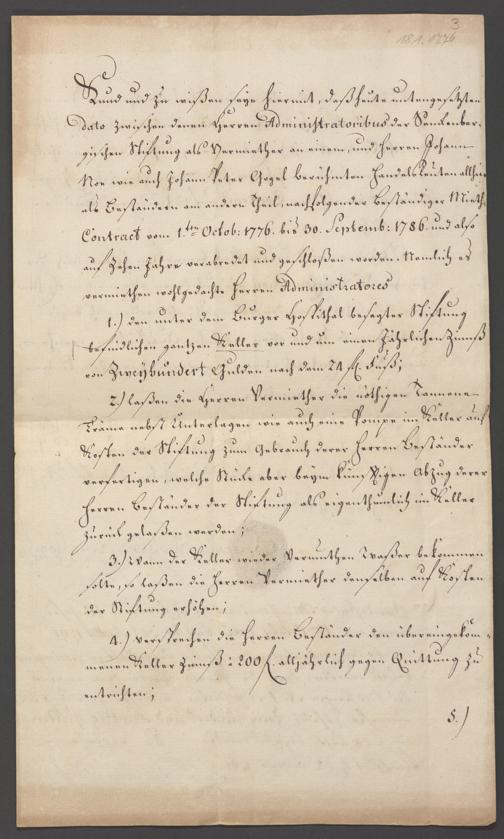 3
18.1.1776
Kund und zu wißen seye hiermit, daß heute untengesetzten
dato zwischen denen Herren Administratoribus der Senkenber-
gischen Stiftung als Vermiether an einem, und Herren Johann
Noe wie auch Johann Peter Gogel berühmten Handelsleuten allhier
als Beständern am andern Theil, nachfolgender Beständiger Mieth
Contract vom 1.ten Octob: 1776. bis 30. Septemb: 1786. und also
auf Zehen Jahre verabredet und geschloßen worden. Nemlich es
vermiethen wohlgedachte Herren Administratores
1.) den unter dem Burger Hospithal besagter Stiftung
befindlichen gantzen Keller vor und um einen Jährlichen Zinnß
von Zweyhundert Gulden nach dem 24 fl. Fuß;
2.) laßen die Herren Vermiether die nöthigen Tannene
Träme nebst Unterlagen wie auch eine Pompe im Keller auf
Kosten der Stiftung zum Gebrauch derer Herren Beständer
verfertigen, welche Stücke aber beym künfftigen Abzug derer
Herren Beständer der Stiftung als eigenthümlich im Keller
zurück gelaßen werden;
3.) Wann der Keller wieder Vermuthen Waßer bekommen
solte, so laßen die Herren Vermiether denselben auf Kosten
der Stiftung erhöhen;
4.) versprechen die Herren Beständer den übereingekom-
menen Keller Zinnß : 200 fl. alljährlich gegen Quittung zu
entrichten;
5.)